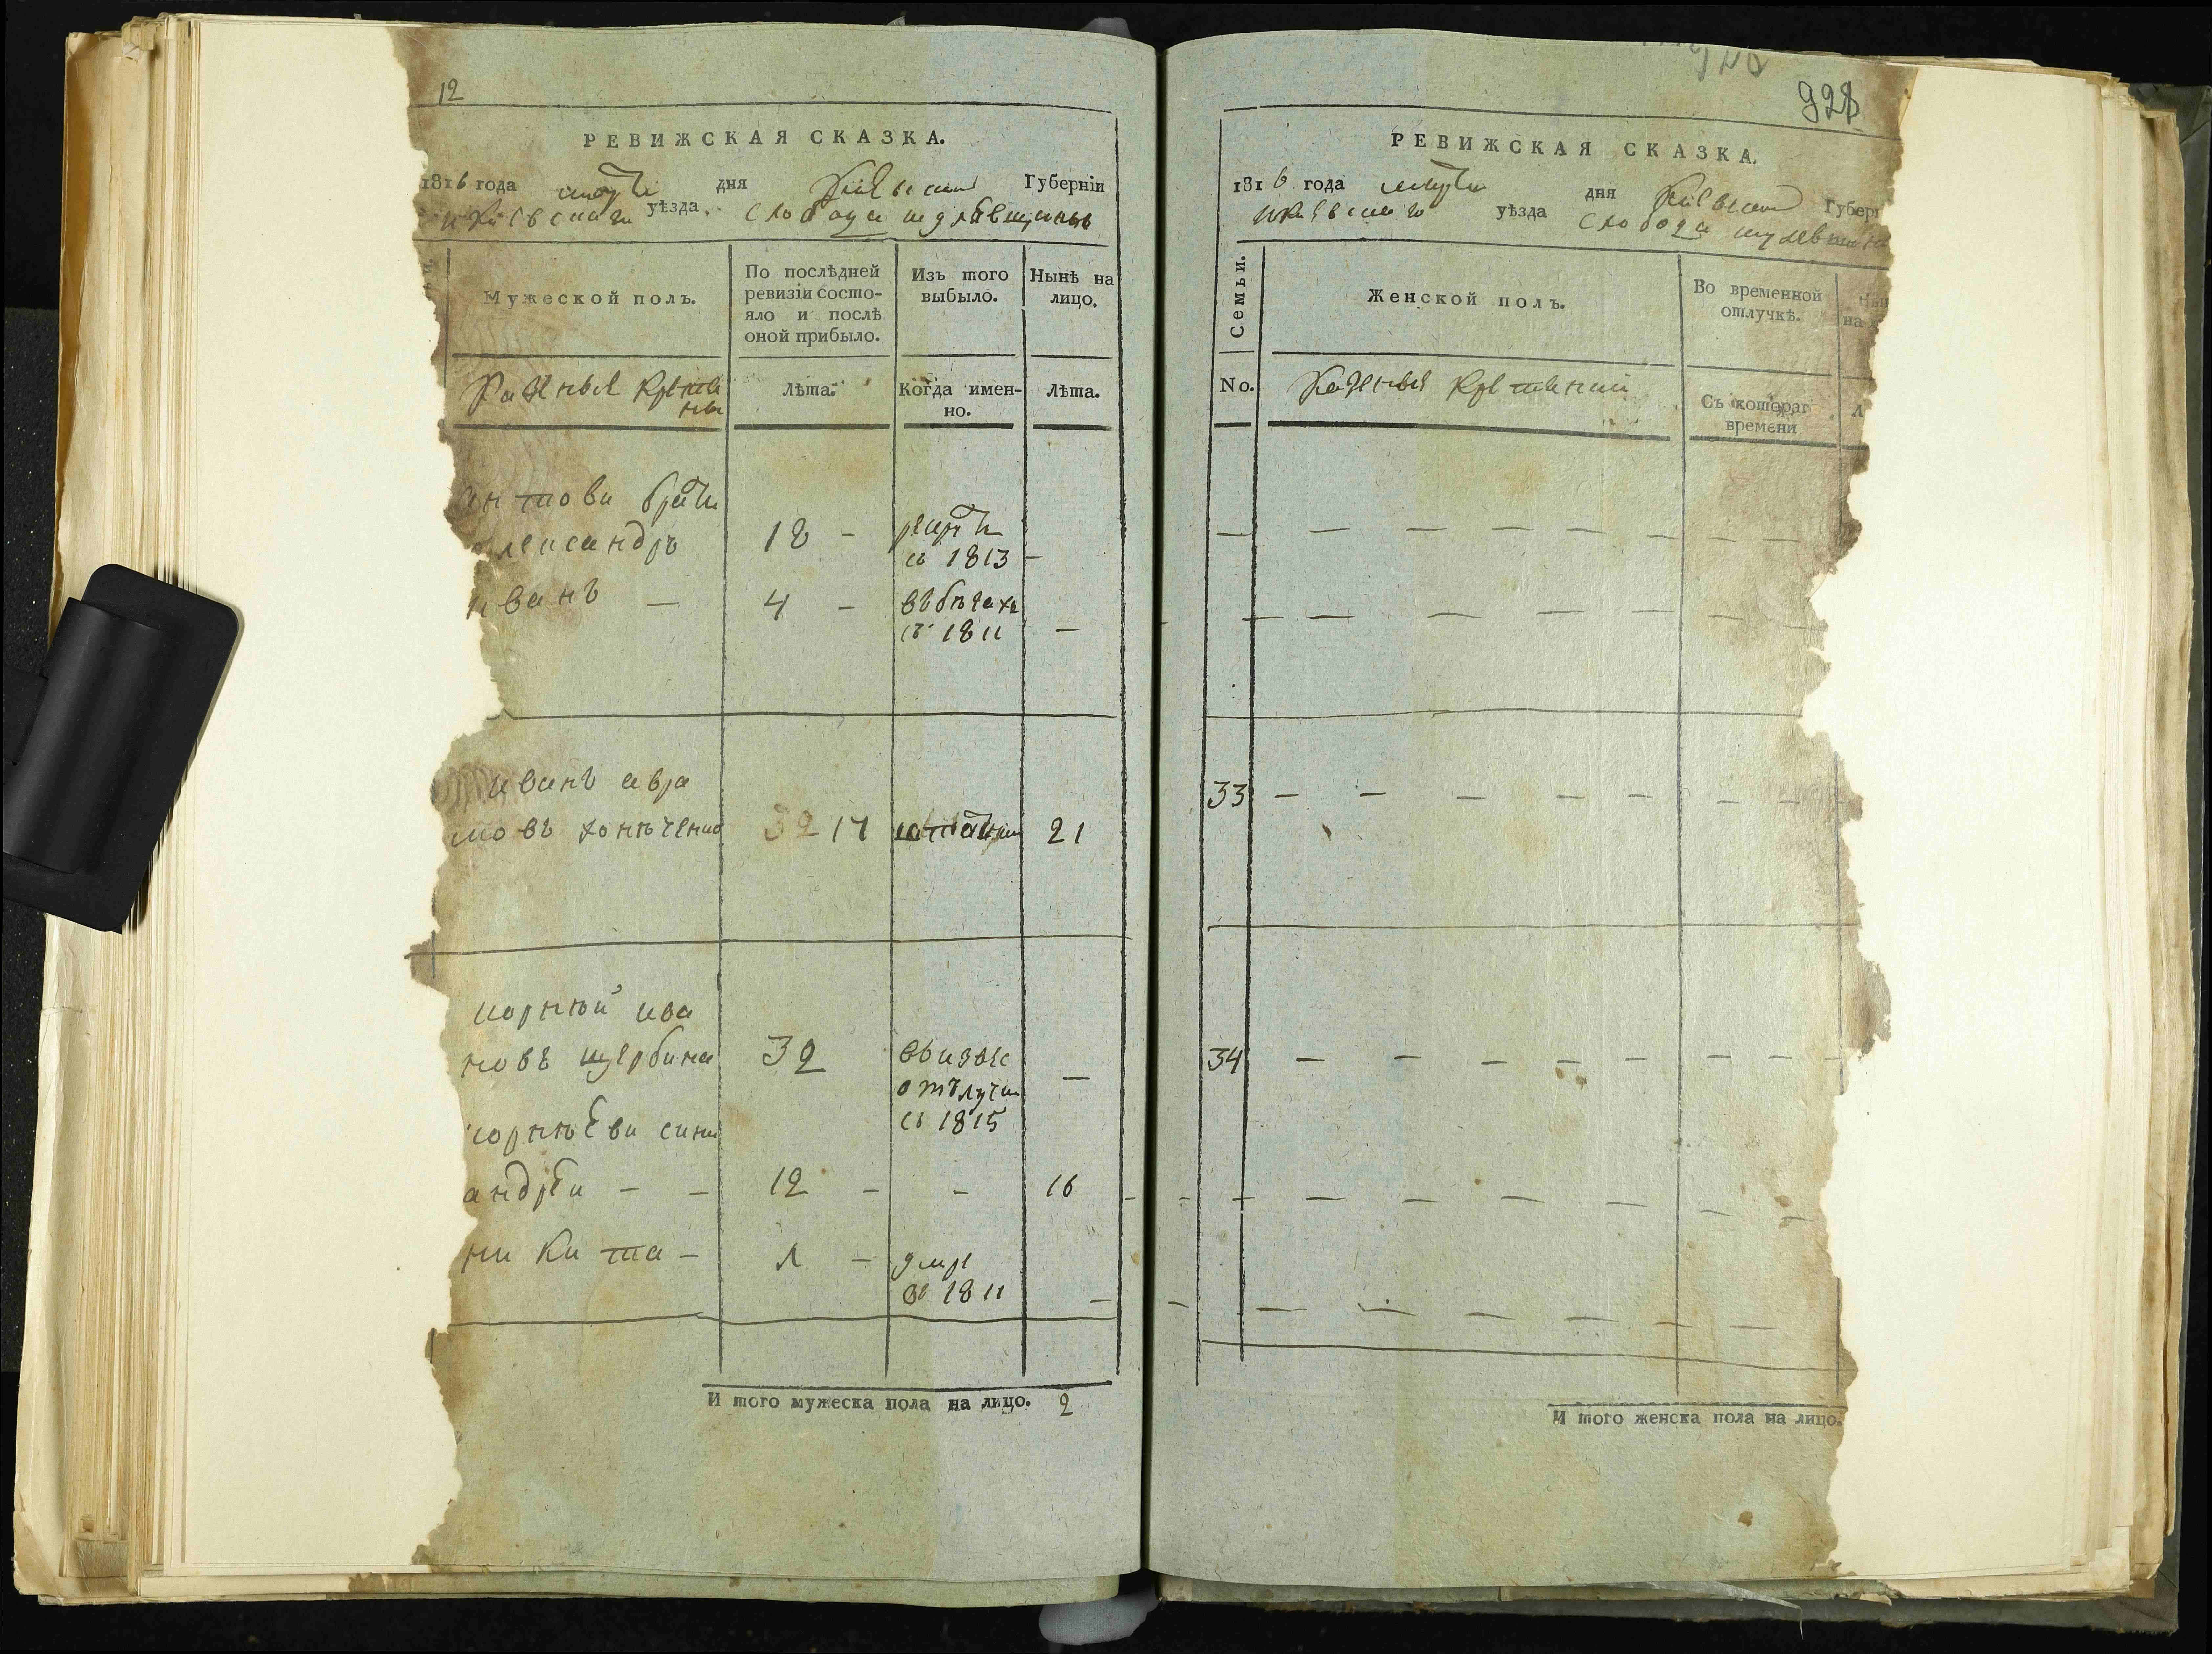 12
РЕВИЖСКАЯ СКАЗКА.
1816 года марта дня Киевской Губерніи
и Киевскаго уѣзда. Слобода
Мужеской полъ.
По послѣдней ревизіи состо-
яло и послѣ
оной прибыло.
Изъ того
выбыло.
Нынѣ на
лицо.
Казенные крестя
не
Лѣта.
Когда имен-
но.
Лѣта.
братя
олександръ 18 - рекрутъ
съ 1813 -
иванъ - 4 - въ бегахъ
съ 1811 -
иванъ авра
мовъ 32 17 21
корнѣй ива
новъ щербина 32
отълучки
съ 1815 -
корнѣеви сини
андреи - - 12 - - 16
никита - 1 - умре
въ 1811 -
И того мужеска пола на лицо. 2
928
РЕВИЖСКАЯ СКАЗКА.
1816 года марта дня Киевской Губер
и Киевскаго уѣзда Слобода
Семьи.
Женской полъ.
Во временной
отлучкѣ.
на
No.
Казенные крестяни
Съ котораг
времени
Л
33
34
И того женска пола на лицо.